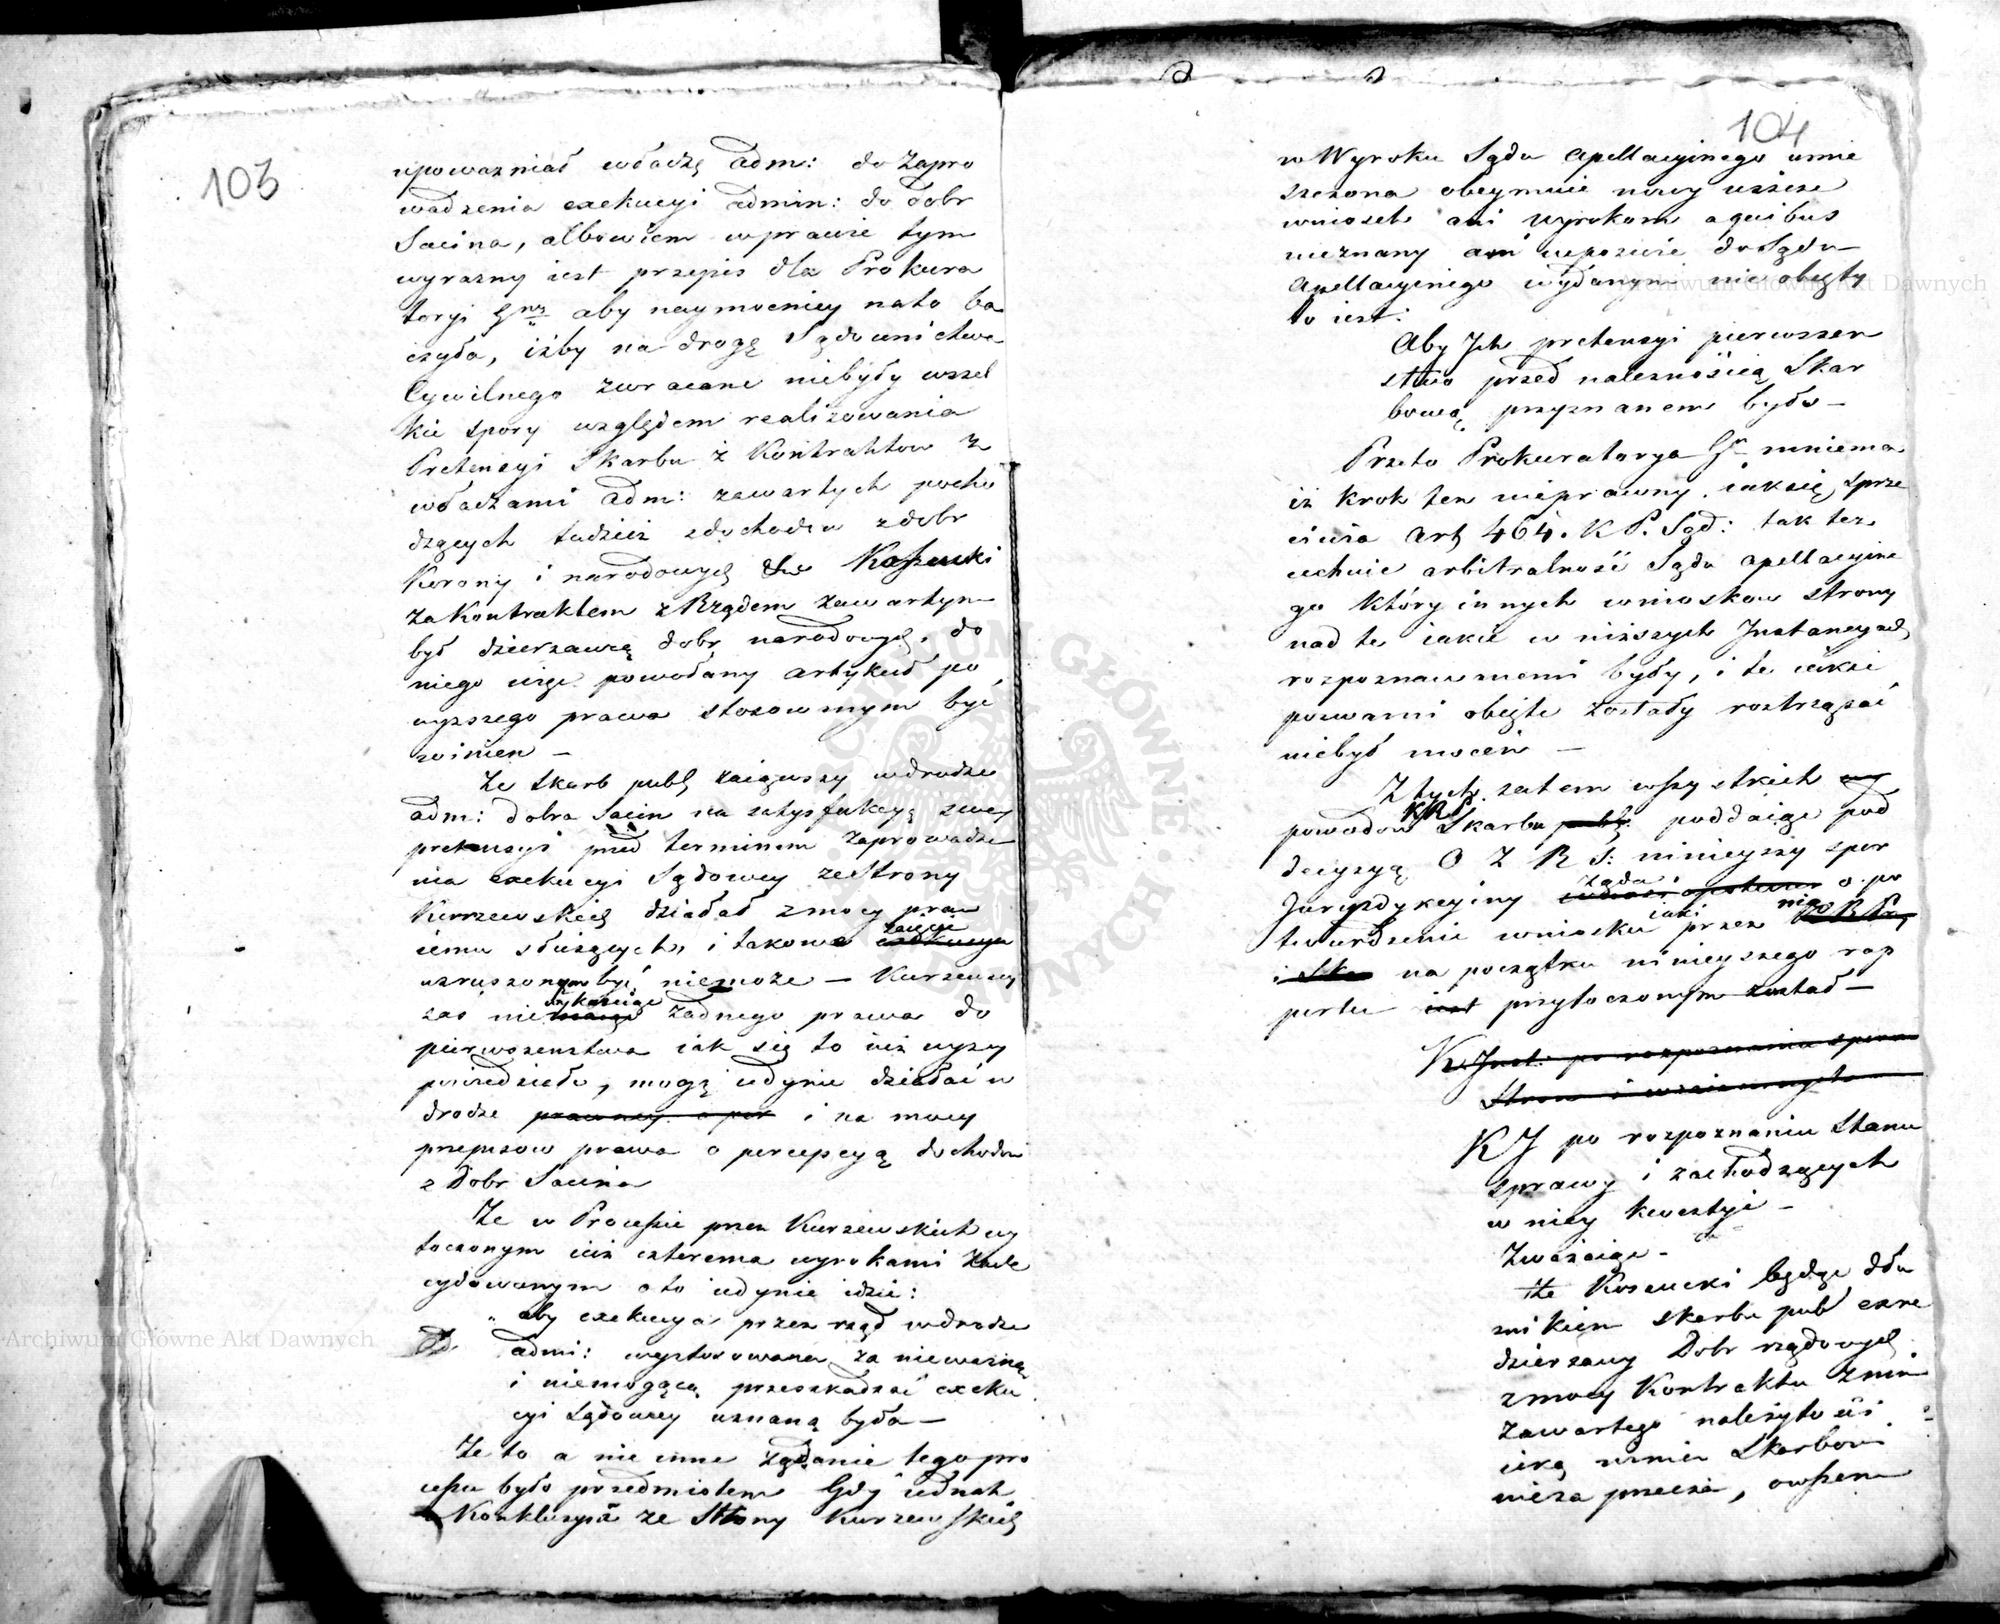 103
upoważniał władzę adm: do zapro
wadzenia exekucyi admin: do dobr
Sacina, albowiem w prawie tym
wyrazny iest przepis dla Prokura
toryi Gnej aby naymocniey na to ba
czyła, iżby na drogę Sądownictwa
Cywilnego zwracane niebyły wszel
kie spory względem realizowania
Pretensyi Skarbu z Kontraktow z
władzami adm: zawartych pocho
dzących tudzież z dochodu z dobr
Korony i narodowych Kossewski
za Kontraktem z Rządem zawartym
był dzierzawcą dobr narodowych, do
niego więc powołany artykuł po
wyzszego prawa stosownym być
winien —
Ze Skarb publ zaiąwszy w drodze
adm: dobra Sacin na satysfakcyą swey
pretensyi przed terminem zaprowadze
nia exekucyi Sądowey ze Strony
Kurzewskich działał z mocy praw
iemu służących, i takowe zaięcie
wzruszonym być niemoże — Kurzewscy
zaś nie wykazuiąc żadnego prawa do
pierwszenstwa iak się to iuż wyzy
powiedziało, mogą iedynie działać w
drodze prawney i na mocy
przepisow prawa o percepcyą dochodow
z Dobr Sacina
Ze w Processie przez Kurzewskich wy
toczonym iuż czterema wyrokami zade
cydowanym o to iedynie idzie:
„ aby exekucya przez rząd w drodze
admi: wystosowana za nieważną
i niemogącą przeszkadzać exeku
cyi Sądowey uznaną była —
Ze to a nie inne ządanie tego pro
cessu było przedmiotem Gdy iednak
Konkluzyia ze Strony Kurzewskich
104
w Wyroku Sądu Apellacyinego umie
szczona obeymuie nowy ieszcze
wniosek ani Wyrokom a quibus
nieznany ani w pozwie do Sądu
Apellacyinego wydanym nie obięty
to iest:
Aby Ich pretensyi pierwszen
stwo przed należnością Skar
bową przyznanem było —
Przeto Prokuratorya Gn mniema
iż krok ten nieprawny, iak się sprze
ciwia Art 464. K P. Sąd: tak też
cechuie arbitralność Sądu apellacyine
go który innych wnioskow strony
nad te iakie w niższych Instancyach
rozpoznawanemi były, i te iakie
pozwami obięte zostały roztrząsać
niebył mocen —
Z tych zatem wszystkich
powodow KRS Skarbu publ: poddaiąc pod
decyzyą O Z R S: ninieyszy spor
Juryzdykcyiny żąda o po
twierdzenie wniosku iaki przez nią
na początku ninieyszego rap
portu iest przytoczonym został —
K. Just: po rozpoznaniu sporu
Stron i wzaiemnych
K J po rozpoznaniu Stanu
sprawy i zachodzących
w niey kwestyi —
Zważaiąc —
Ze Kossewski będąc dłu
znikiem skarbu pub z
dzierzawy Dobr rządowych
z mocy Kontraktu z nim
zawartego należytości
iaką winien Skarbowi
nieza przecza, owszem